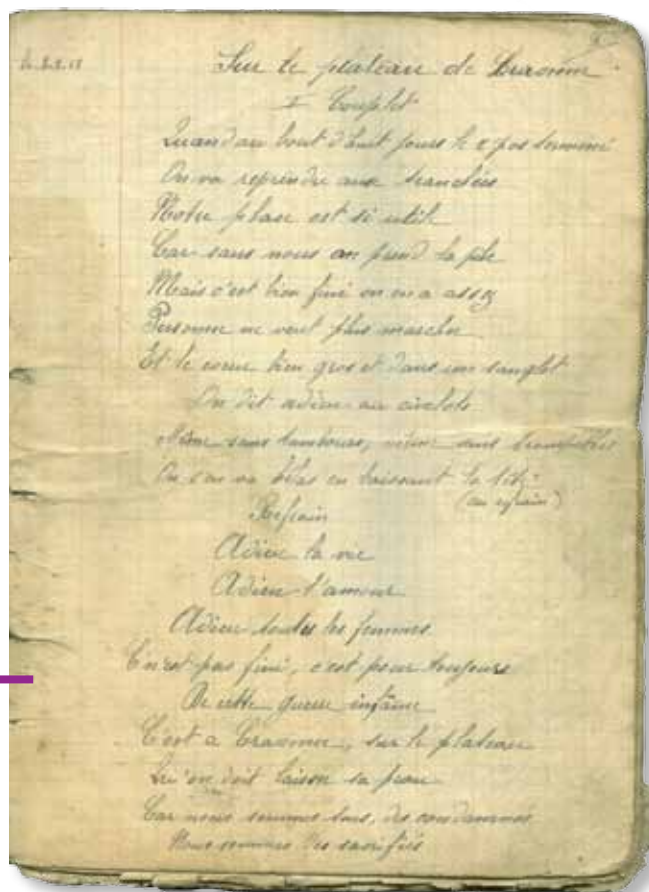 Sur le plateau de Craonne
I Couplet
Quand au bout d'huit jours le r'pos terminé
On va reprendre aux tranchées
Notre place est si utile
Car sans nous on prend la pile
Mais c'est bien fini on en a assez
Personne ne veut plus marcher
Et le coeur bien gros et dans un sanglot
On dit adieu au civelots
Même sans tambours, même sans trompettes
On s'en va là bas en baissant la tête
(au refrain)
Refrain
Adieu la vie
Adieu l'amour
Adieu toutes les femmes
C'n'est pas fini, c'est pour toujours
De cette guerre infâme
C'est a Craonne, sur le plateau
Qu'on doit laisser sa peau
Car nous sommes tous, des condamnés
Nous sommes des sacrifiés